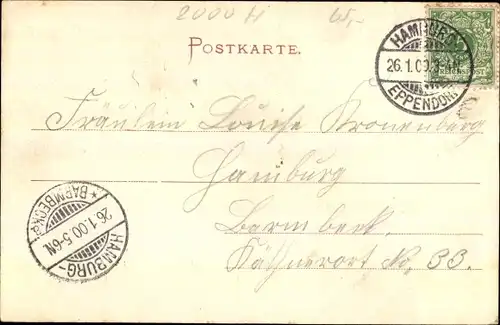 2000 H 65,-
POSTKARTE.
HAMBURG
26.1.00.3-4N
EPPENDORF
REICHSPOST
Fräulein Louise Kronenberg
Hamburg
Barmbeck.
Käthnerort No. 33.
HAMBURG-
26.1.00.5-6N.
*BARMBECK*